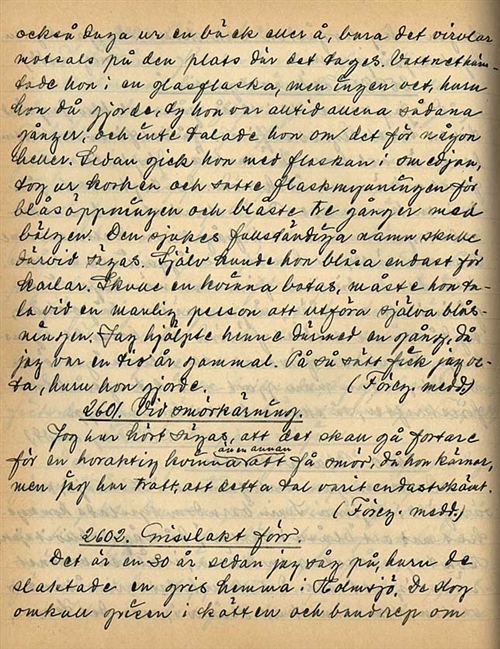 också duga ur en bäck eller å, bara det virvlar
motsols på den plats där det tages. Vattnet häm-
tade hon i en glasflaska, men ingen vet, huru
hon då gjorde, ty hon var alltid allena sådana
gånger, och inte talade hon om det för någon
heller. Sedan gick hon med flaskan i smedjan,
tog ur korken och satte flaskmynningen för
blåsöppningen och blåste tre gånger med
bälgen. Den sjukes fullständiga namn skulle
därvid sägas. Själv kunde hon blåsa endast för
karlar. Skulle en kvinna botas, måste hon ta-
la vid en manlig person att utföra själva blås-
ningen. Jag hjälpte henne därmed en gång, då
jag var en tio år gammal. På så sätt fick jag ve-
ta, huru hon gjorde. (Föreg. medd.)
2601. Vid smörkärning.
Jag har hört sägas, att det skall gå fortare
för en horaktig kvinna än en annan att få smör, då hon kärnar,
men jag har trott, att detta tal varit endast skämt.
(Föreg. medd.)
2602. Grisslakt förr.
Det är en 30 år sedan jag såg på, huru de
slaktade en gris hemma i Holmsjö. De slog
omkull grisen i kätten och band rep om